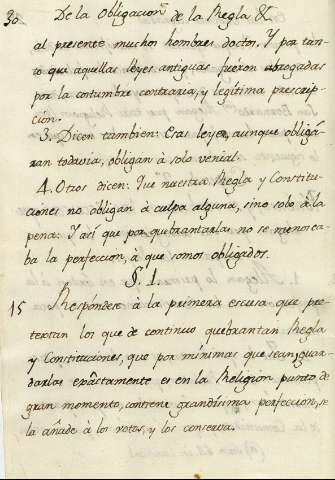 30.
De la Obligacion de la Regla &
al presente muchos hombres doctos. Y por tan-
to que aquellas leyes antiguas fueron abrogadas
por la costumbre contraria, y legitima prescrip-
cion.
3. Dicen tambien: Esas leyes, aunque obligá-
ran todavia, obligan à solo venial.
4. Otros dicen: Que nuestra Regla y Constitu-
ciones no obligan à culpa alguna, sino solo à la
pena: Y asi que por quebrantarlas no se menosca-
ba la perfeccion, à que somos obligados.
§. 1.
15 Respondese à la primera escusa que pre-
textan los que de continuo quebrantan Regla
y Constituciones, que por minimas que sean, guar-
darlas exâctamente es en la Religion punto de
gran momento, contiene grandisima perfeccion, se
la añade à los votos, y los conserva.